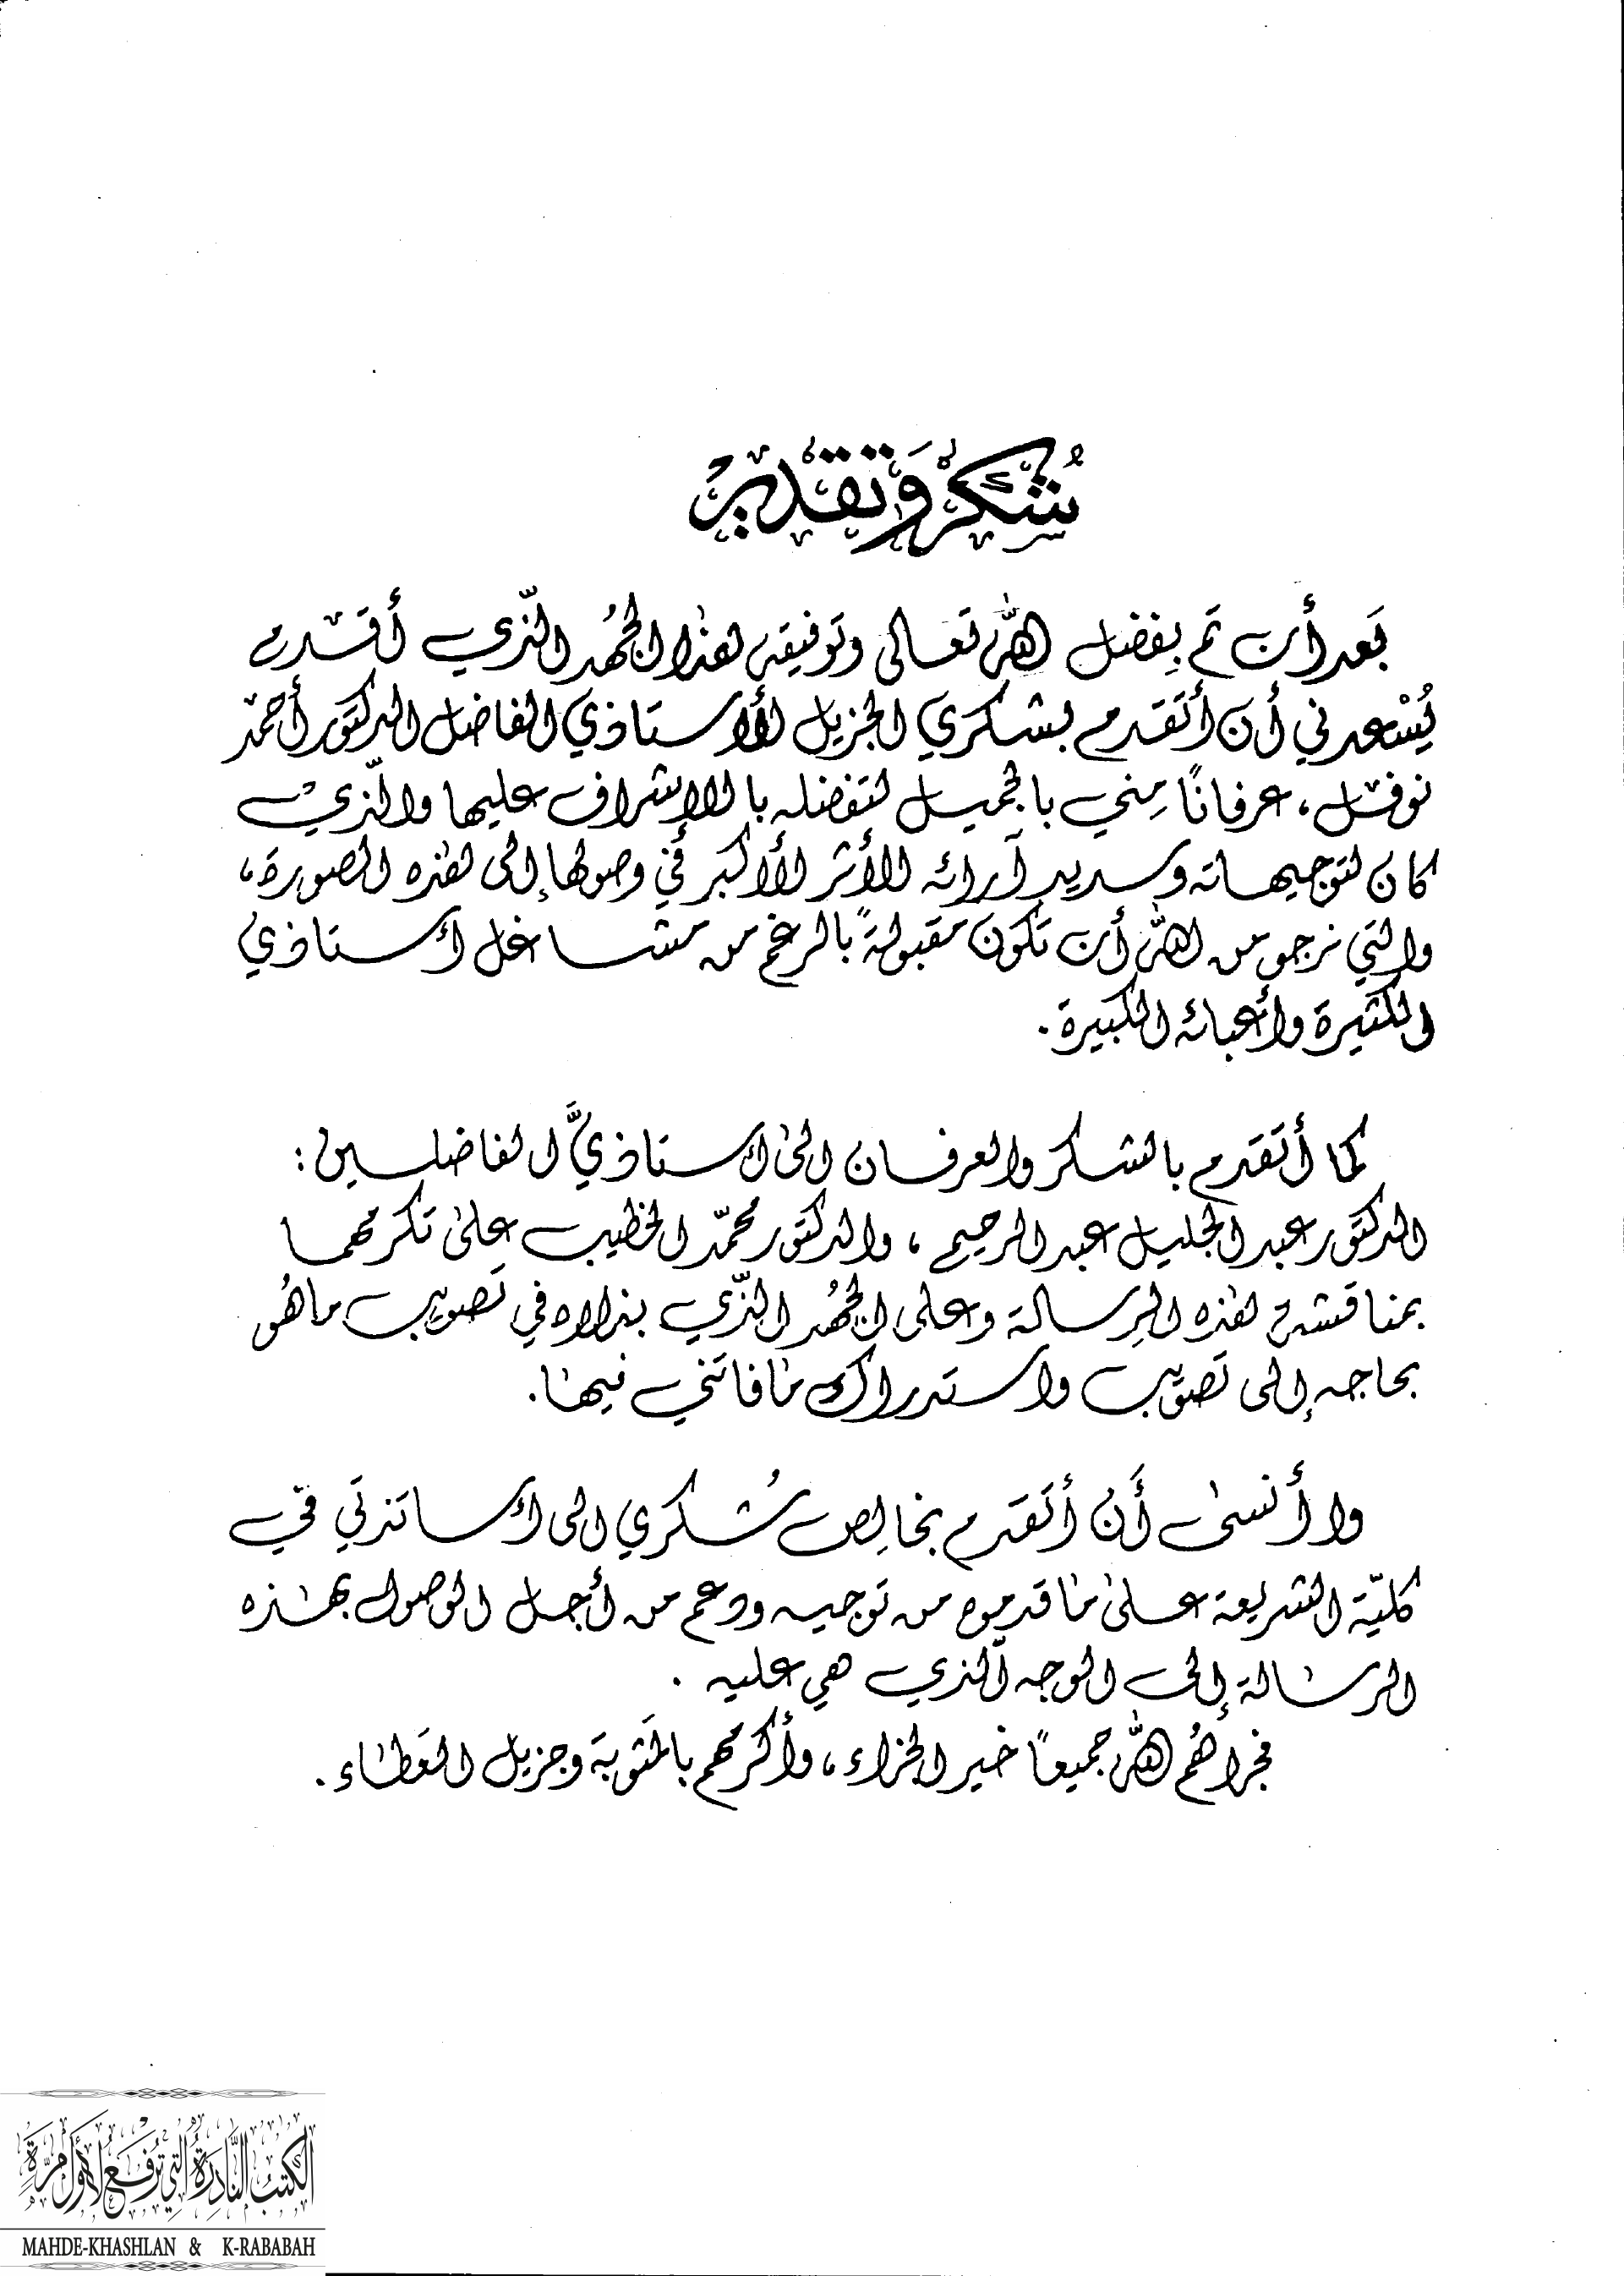 شُكْرٌ وَتَقْدِيرٌ
بَعد أن تَم بِفضل الله تعالى وتوفيقه هذا الجُهد الّذي أقدم
يُسْعدني أن أتقدم بشكري الجزيل لأستاذي الفاضل الدكتور أحمَد
نوفل، عرفانًا مِني بالجميل لتفضله بالإشراف عليها والّذي
كان لتوجيهاته وسديد آرائه الأثر الأكبر في وصولها إلى هذه الصورة،
والتي نرجو من الله أن تكون مقبولةً بالرغم من مشاغل أستاذي
الكثيرة وأعبائه الكبيرة.
كما أتقدم بالشكر والعرفان الى أستاذيَّ الفاضلين:
الدكتور عبد الجليل عبد الرحيم، والدكتور محمّد الخطيب على تكرمهما
بمناقشة هذه الرِسالة وعلى الجُهد الّذي بذلاه في تَصويب ما هُو
بحاجه إلى تَصويب واستدراك ما فاتني فيها.
ولا أنسى أَن أتقدم بخالِص شُكري الى أساتذتي في
كليّة الشريعة على ما قدموه من توجيه ودعم من أجل الوصول بهذه
الرسالة إلى الوجه الّذي هي عليه.
فجزاهُم الله جميعاً خير الجزاء، وأكرمهم بالمَثوبة وجزيل العَطاء.
الكُتُبُ النَّادِرَةُ الَّتِي تُرْفَعُ لِأَوَّلِ مَرَّةٍ
MAHDE-KHASHLAN & K-RABABAH